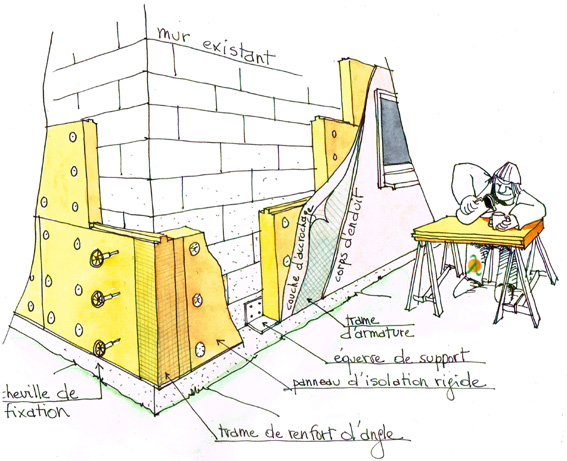 mur existant
couche d'accrochage
corps d'enduit
trame
d'armature
équerre de support
panneau d'isolation rigide
cheville de
fixation
trame de renfort d'angle